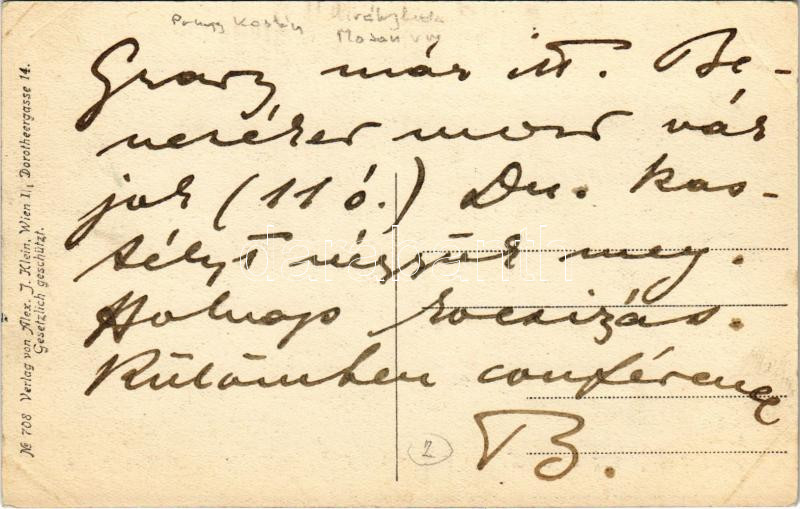 Mosan
Gratz már itt. Be-
neréket most vár
juk (11 ó.) Du. kas-
télyt nézzük meg.
Holnap kocsizás.
Különben conférence
B.
2
№ 708 Verlag von Alex. J. Klein, Wien I., Dorotheergasse 14.
Gesetzlich geschützt.
darabanth